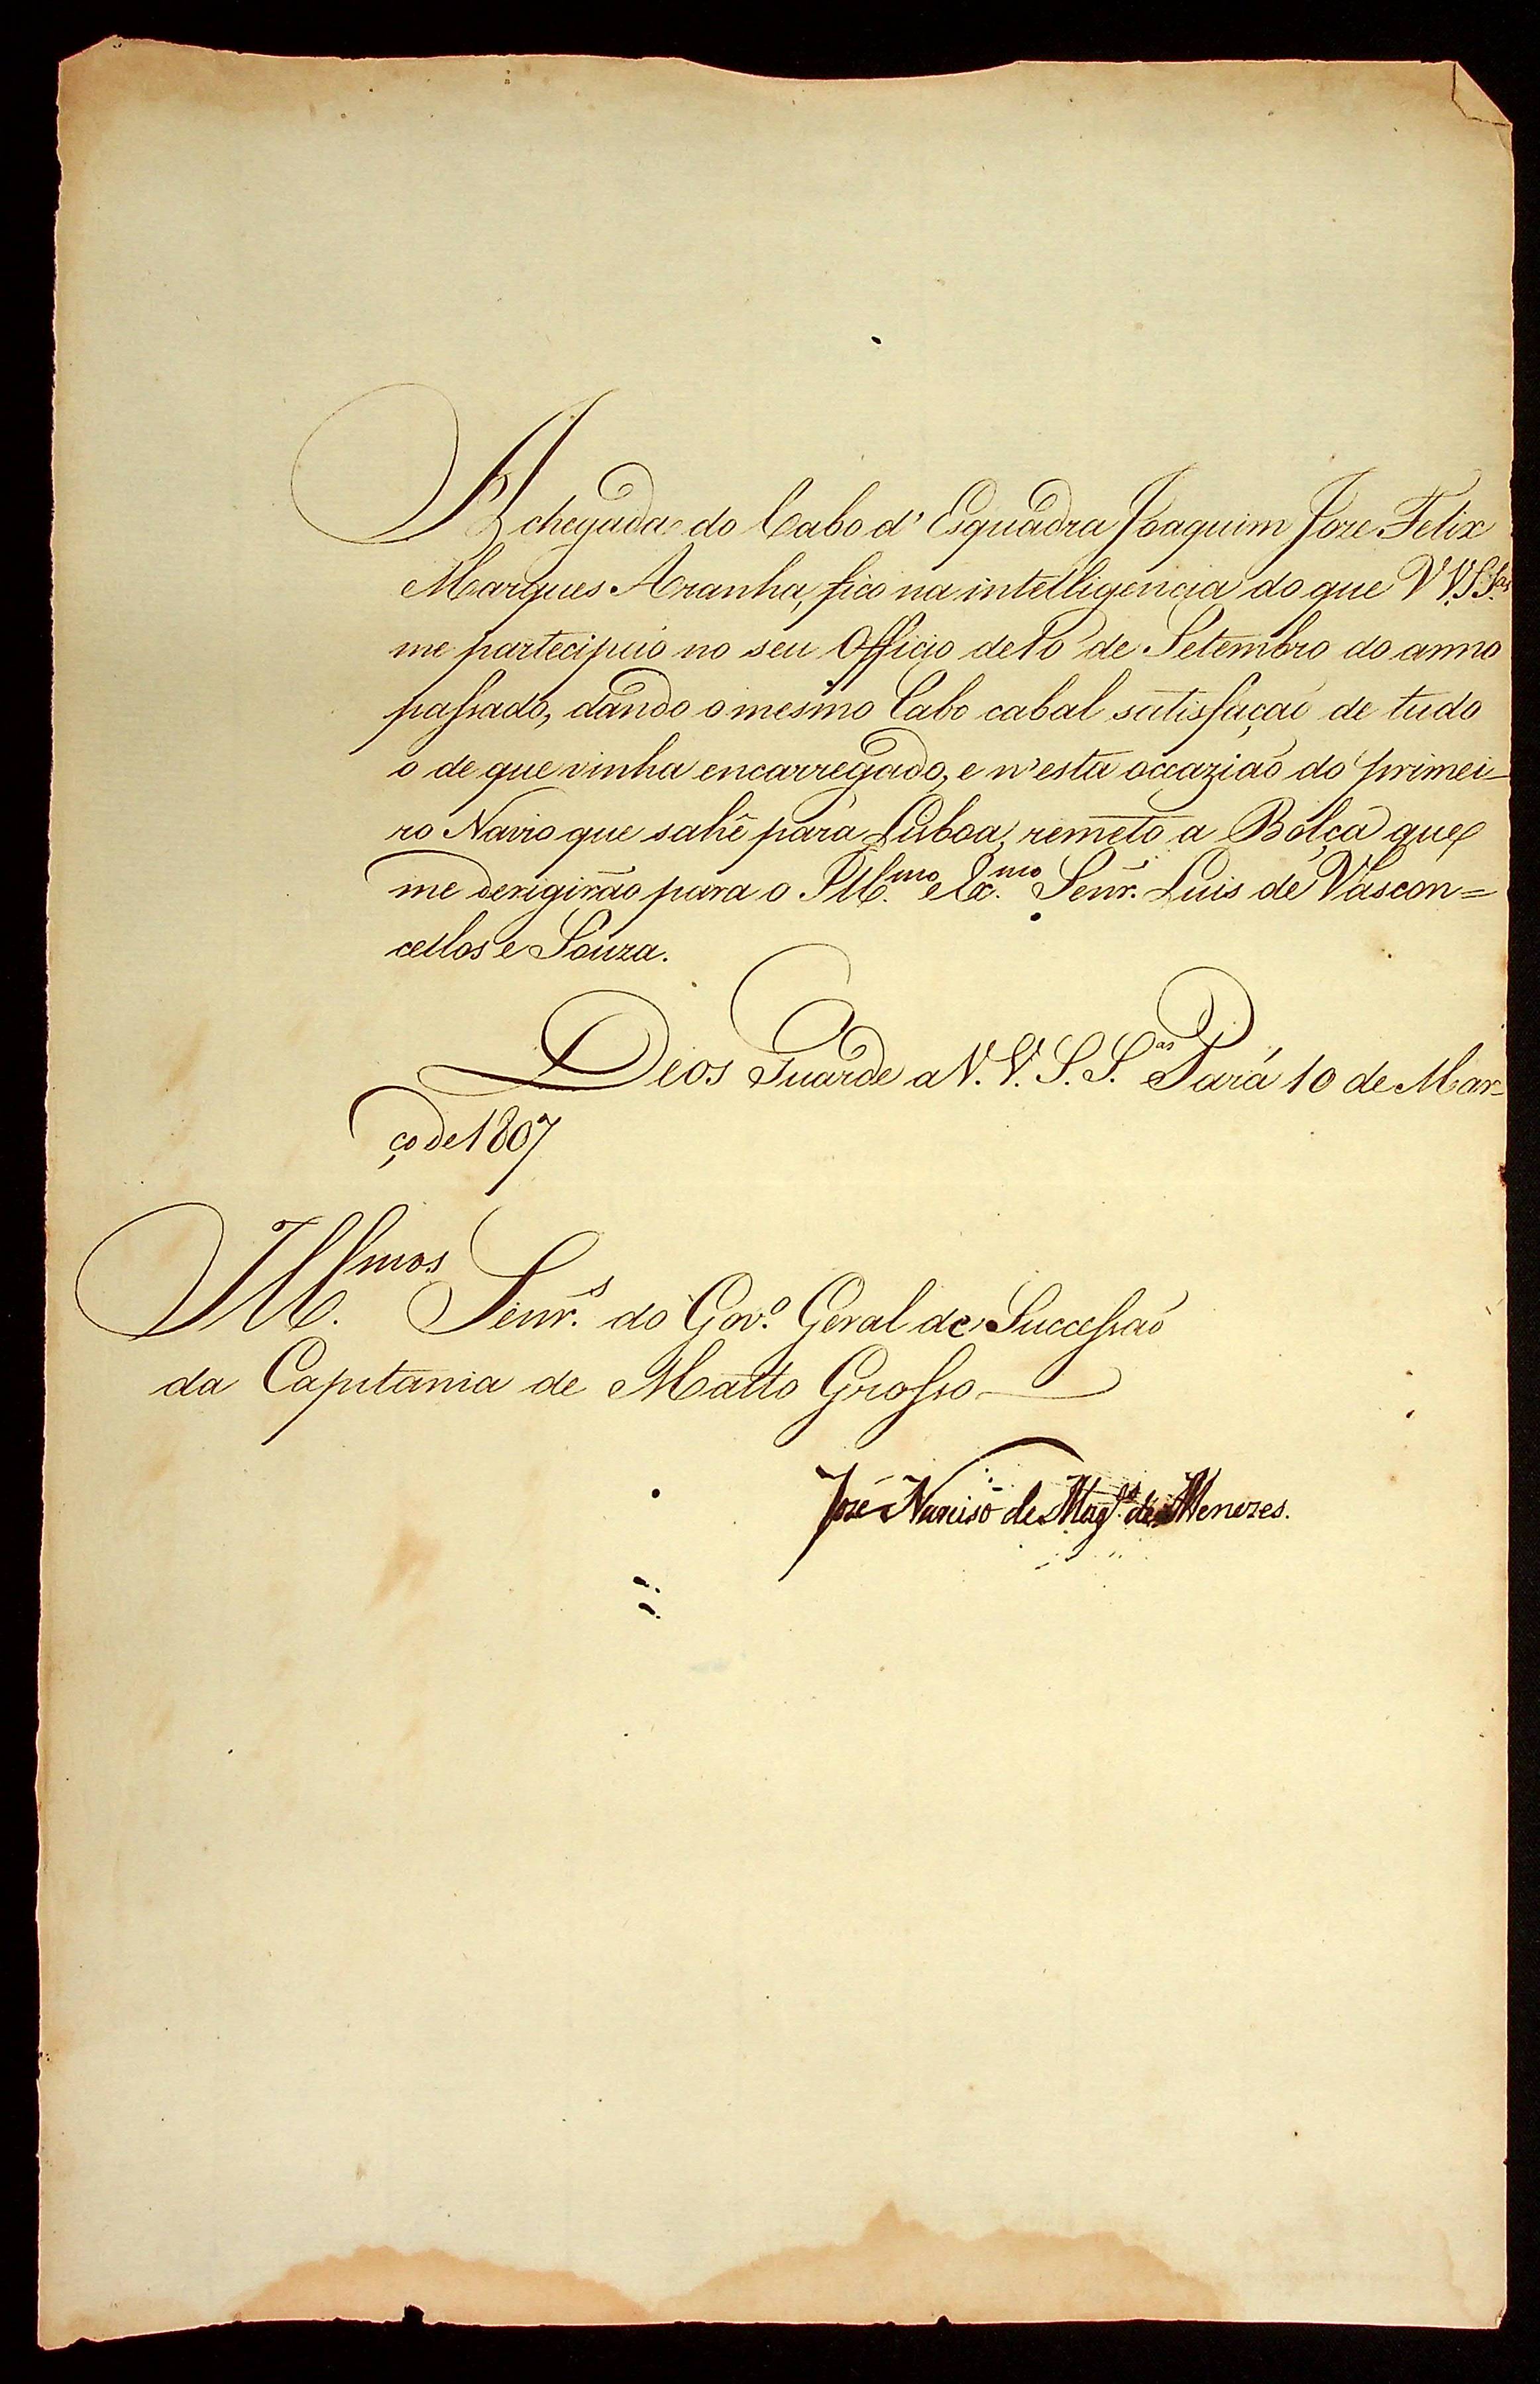 A chegada do Cabo d' Esquadra Joaquim Joze Felix
Marques Aranha, fico na intelligencia do que V.V.S.S.as
me partecipão no seu Officio de 10 de Setembro do anno
passado, dando o mesmo Cabo cabal satisfação de tudo
o de que vinha encarregado, e n'esta occazião do primei-
ro Navio que sahe para Lisboa, remeto a Bolça que
me derigirão para o Ill.mo e Ex.mo Senr. Luis de Vascon=
cellos e Souza.
Deos Guarde a V.V.S.S.as Pará 10 de Mar-
ço de 1807
Ill.mos Senr.s do Gov.o Geral de Successão
da Capitania de Matto Grosso
José Narciso de Mag.es de Menezes.